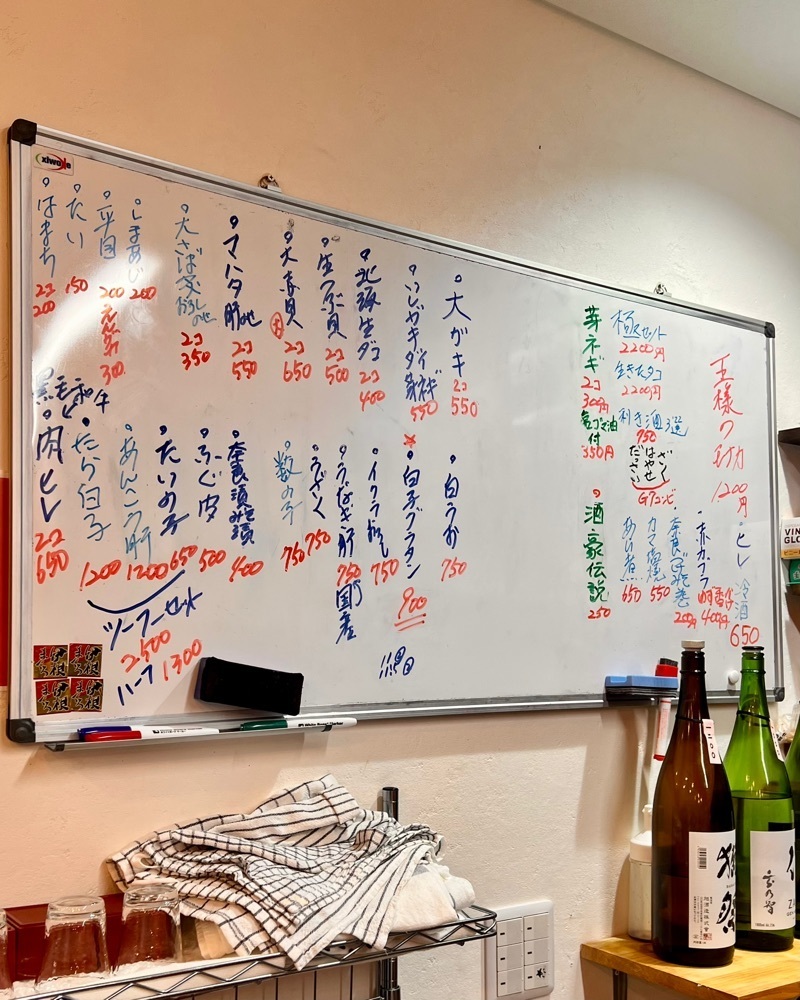 王様の功力 1200円
極セット
2200円
生きたタコ
2200円
芽ネギ
2コ
300円
付
350円
利き酒3選
750
だっさい
はやせ
ざく
GTコンビ
ヒレ冷酒
650
赤カブラ
400円
奈良
カマ塩焼
550
あら煮
650
酒豪伝説
250
大ガキ
2コ
550
いしがきダイ
芽ネギ
550
北海生ダコ
2コ
400
生つぶ貝
2コ
500
大赤貝
2コ
650
マハタ肝のせ
2コ
550
大さば
おろしのせ
2コ
350
しまあじ
200
平目
200
えんがわ
300
たい
150
はまち
2コ
200
白うお
750
白子グラタン
900
イクラおろし
750
うなぎ肝
750
国産
うざく
750
数の子
750
奈良漬
400
ふぐ皮
500
たいの子
650
あんこう肝
1200
たら白子
1200
黒毛
肉ヒレ
2コ
650
ツーフーセット
2500
ハーフ
1300
White Board Marker
獺祭
VIN
GLO